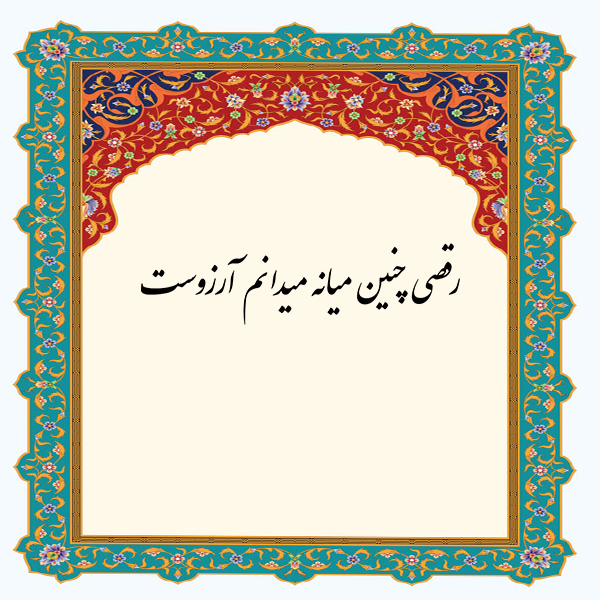 رقصی چنین میانه میدانم آرزوست